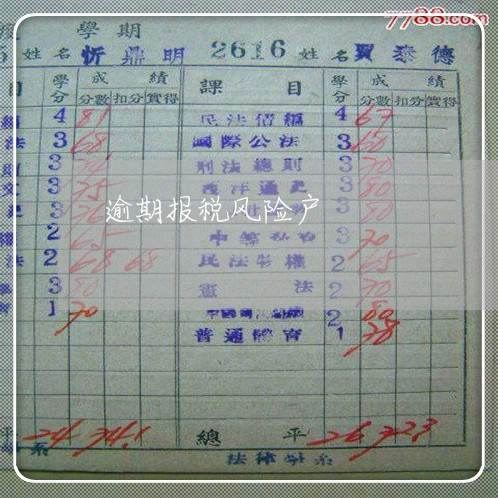 7788.com
學期
5 姓名 忻鼎明 2616 姓名 賈泰德
目 學分 成績 課目 學分 成績
分數 扣分 實得 分數 扣分 實得
4 81 民法債編 4 67
法 3 68 國際公法 3 60
3 刑法總則 3 70
文 3 75 西洋通史 3 80
3 3 80
權 2 65 3 70
法 2 68 68 民法物權 2 65
3 80 憲法 2 70
1 70 2 80
普通體育 1 78
逾期报税风险户
平 24 74.1 總平 26 72.3
系 法律學系